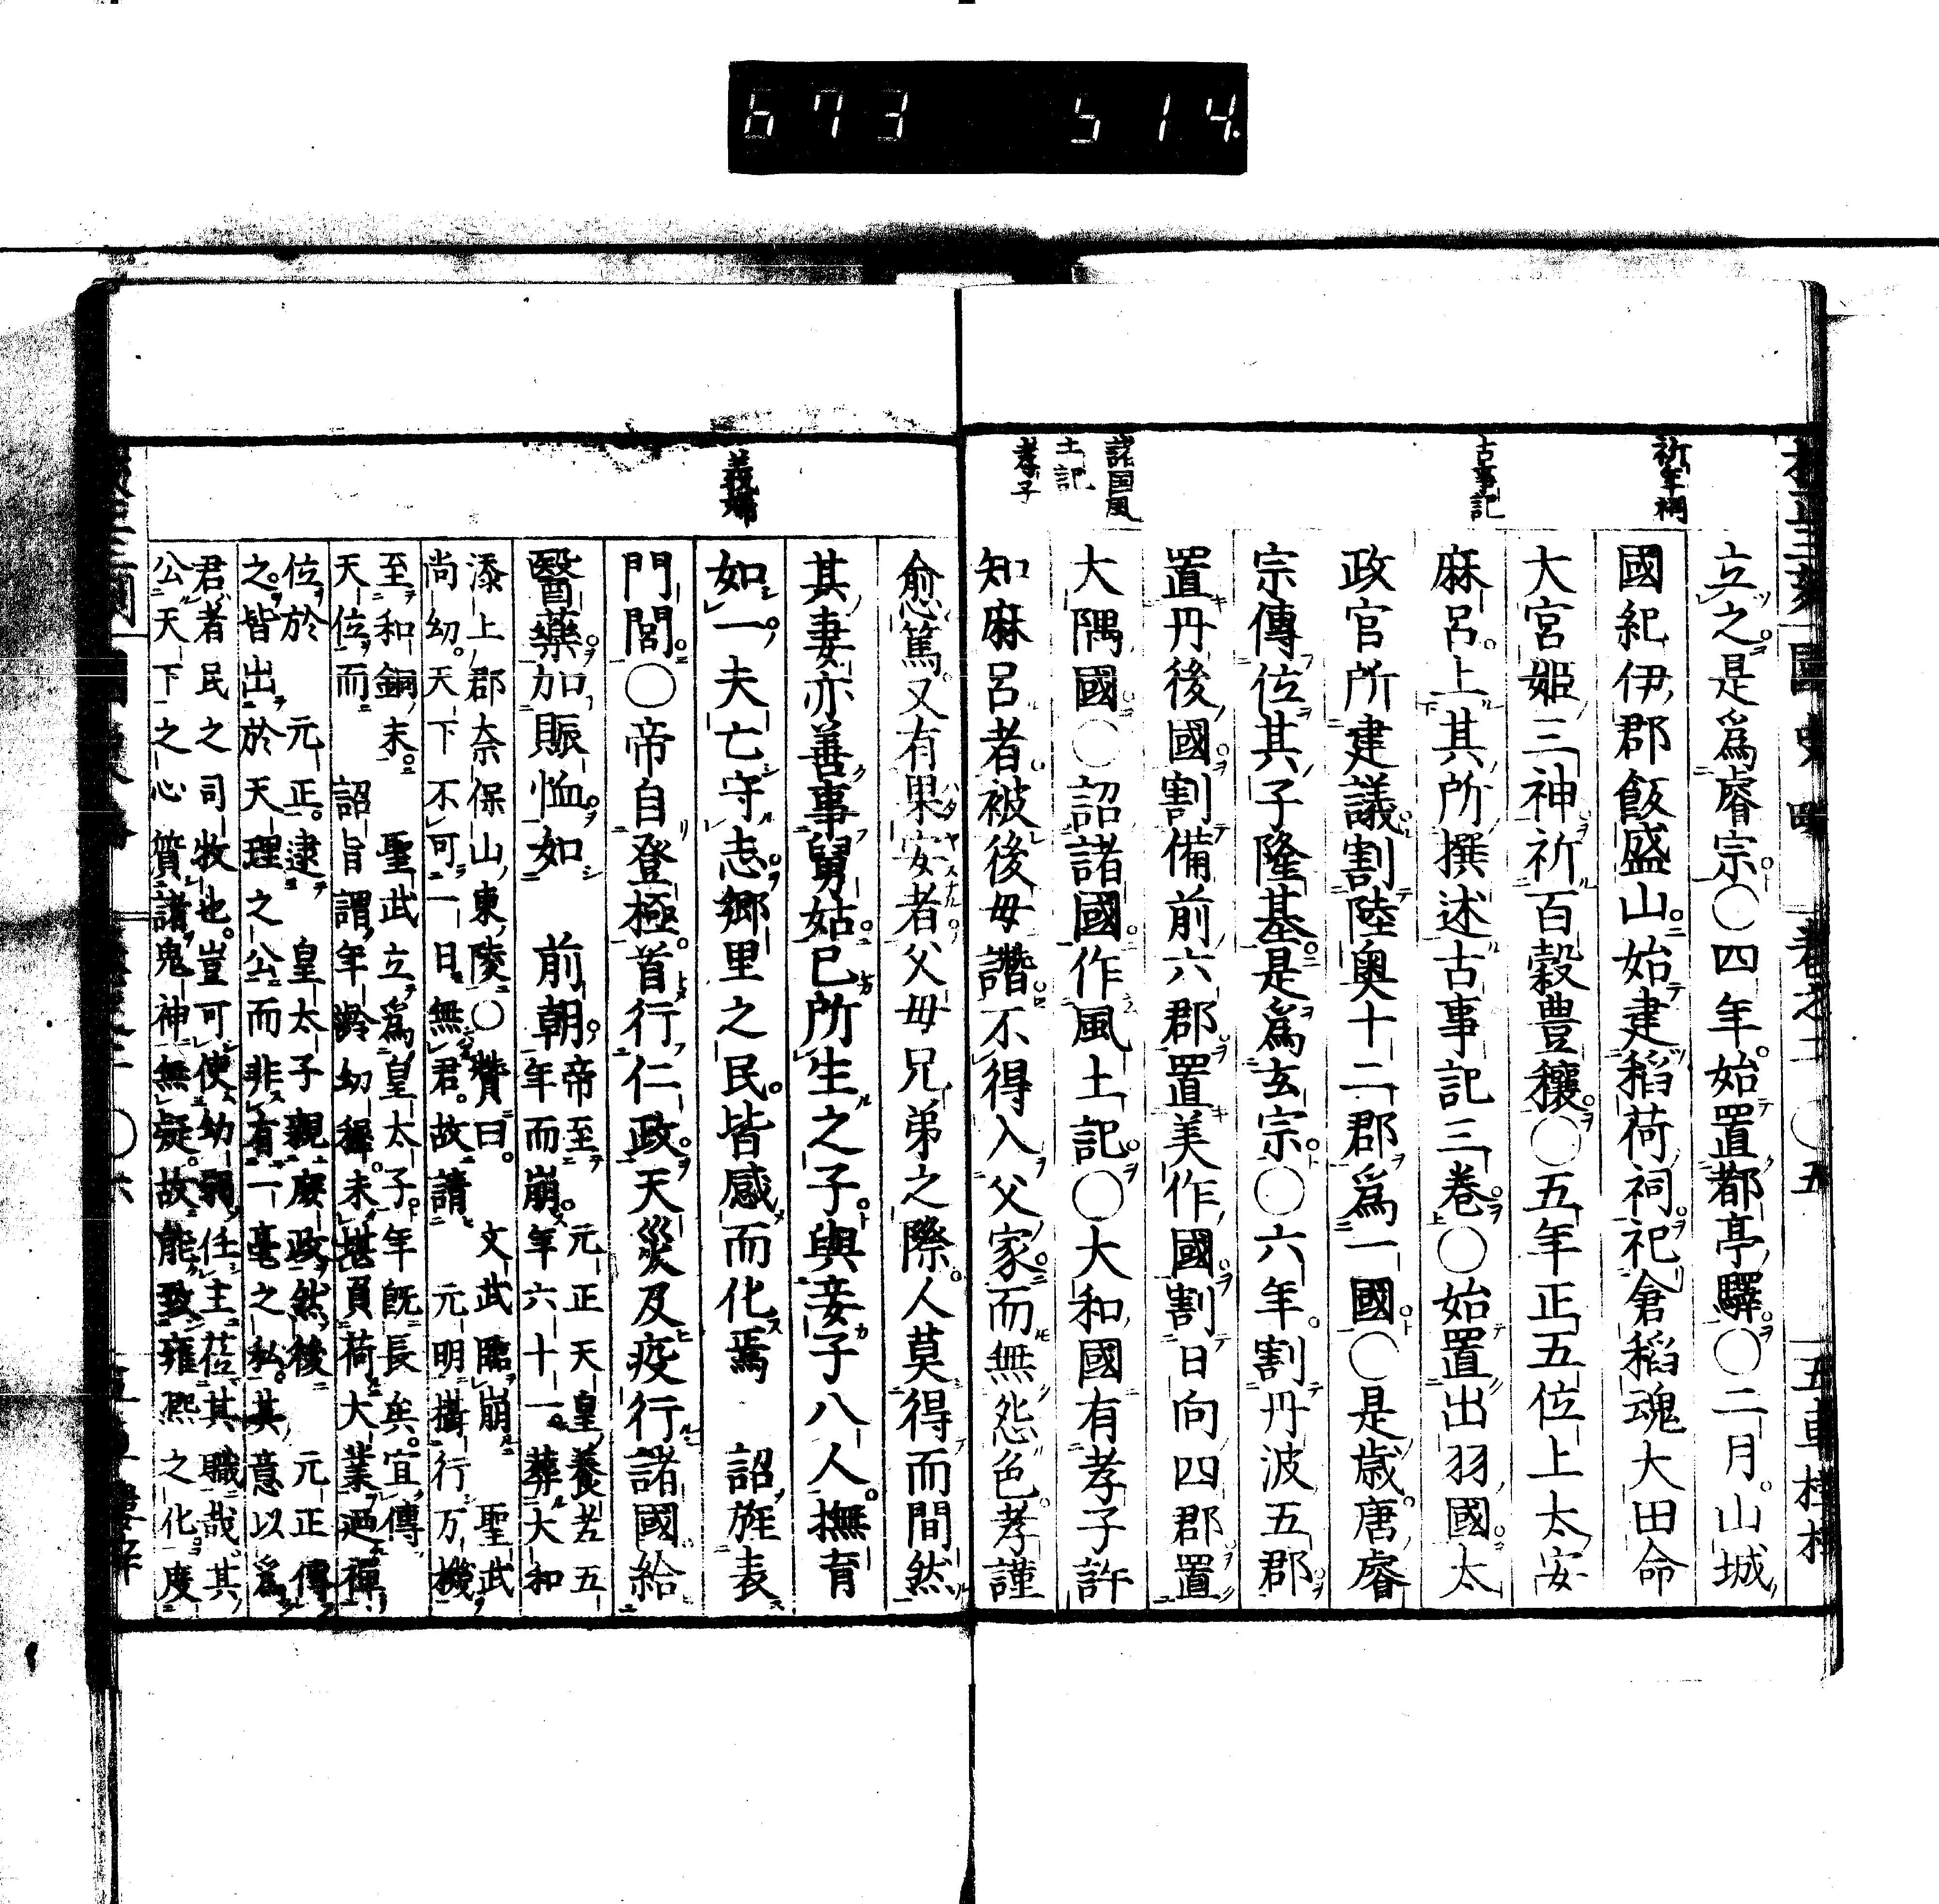 673 514
祈年祠
古事記
諸国風
土記
孝子
立之是爲睿宗〇四年始置都亭驛〇二月山城
國紀伊郡飯盛山始建稻荷祠祀倉稻魂大田命
大宮姫三神祈百穀豊穰〇五年正五位上太安
麻呂上其所撰述古事記三卷〇始置出羽國太
政官所建議割陸奥十二郡爲一國〇是歳唐睿
宗傳位其子隆基是爲玄宗〇六年割丹波五郡
置丹後國割備前六郡置美作國割日向四郡置
大隅國〇詔諸國作風土記〇大和國有孝子許
知麻呂者被後母讒不得入父家而無怨色孝謹
義婦
愈篤又有果安者父母兄弟之際人莫得而間然
其妻亦善事舅姑已所生之子與妾子八人撫育
如一夫亡守志郷里之民皆感而化焉 詔旌表
門閭〇帝自登極首行仁政天災及疫行諸國給
醫藥加賑恤如 前朝帝至 元正天皇養老五
年而崩年六十一葬大和
添上郡奈保山東陵〇贊曰 文武臨崩 聖武
尚幼天下不可一日無君故請 元明攝行万機
至和銅末 聖武立爲皇太子年既長矣宜傳
天位而 詔旨謂年齡幼稚未堪負荷大業廼禪
位於 元正逮 皇太子親庶政然後 元正傳
之皆出於天理之公而非有一毫之私其意以爲
君者民之司牧也豈可使幼弱任主莅其職哉其
公天下之心質諸鬼神無疑故能致雍熙之化度